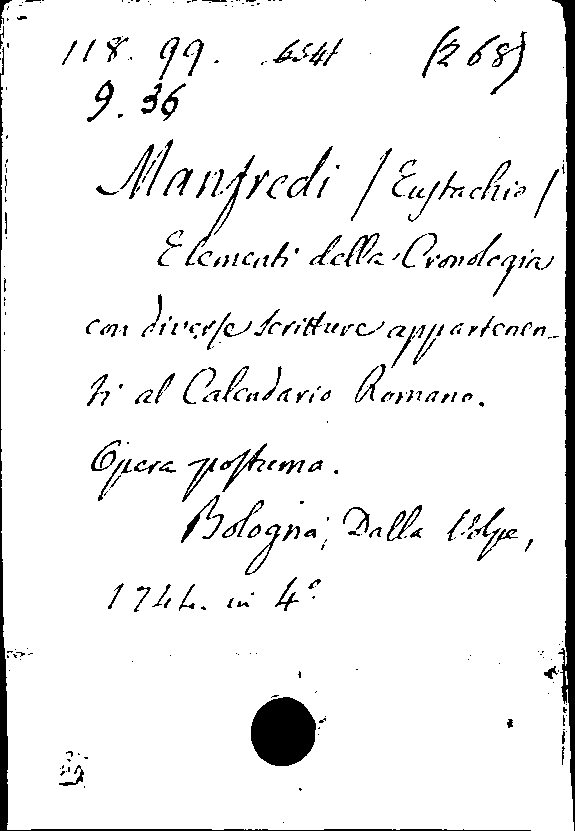 118. 99. 6541 (268)
9. 36
Manfredi / Eustachio /
Elementi della Cronologia
con diverse scritture appartenen-
ti al Calendario Romano.
Opera postuma.
Bologna, Dalla Volpe,
1744. in 4°